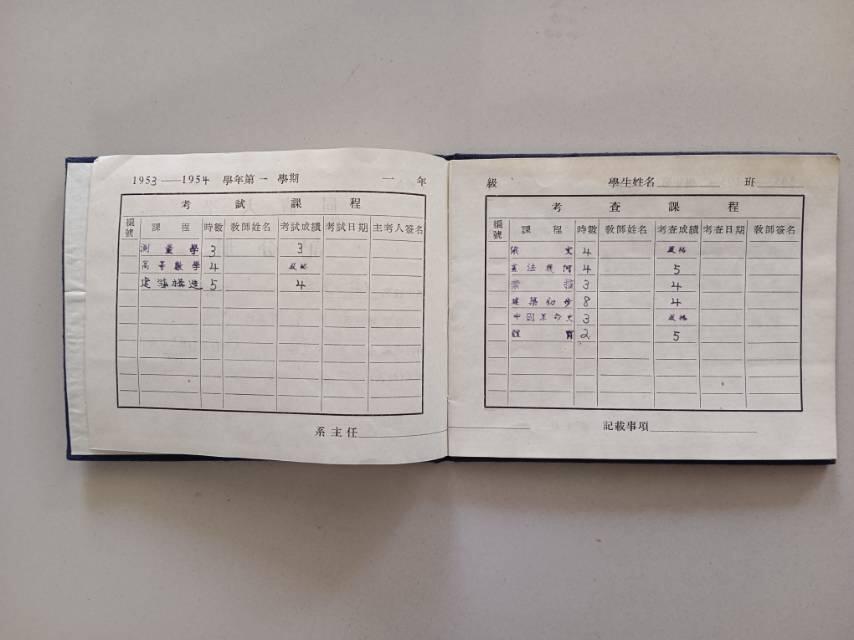 1953——1954 學年第一學期 一 年
考試課程
編號 課程 時數 教師姓名 考試成績 考試日期 主考人簽名
測量學 3 3
高等數學 4 及格
建築構造 5 4
系主任
級 學生姓名 班
考查課程
編號 課程 時數 教師姓名 考查成績 考查日期 教師簽名
俄文 4 及格
畫法幾何 4 5
3 4
建築初步 8 4
中國革命史 3 及格
體育 2 5
記載事項